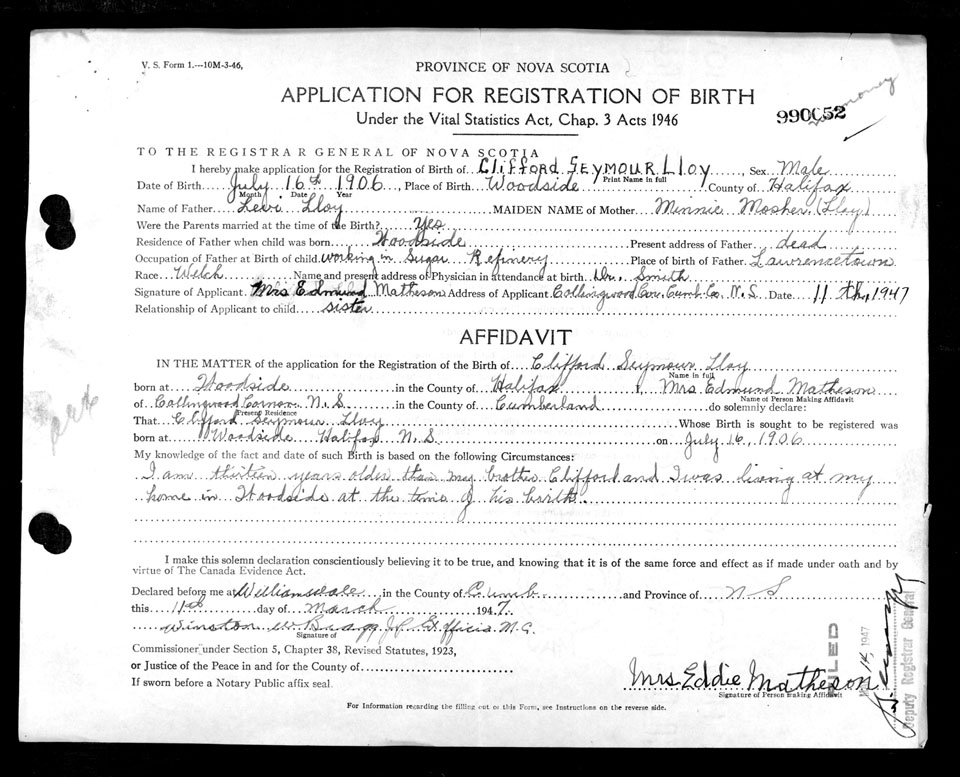 V. S. Form 1.---10M-3-46,
PROVINCE OF NOVA SCOTIA
APPLICATION FOR REGISTRATION OF BIRTH
Under the Vital Statistics Act, Chap. 3 Acts 1946
990052
no money
TO THE REGISTRAR GENERAL OF NOVA SCOTIA
I hereby make application for the Registration of Birth of Clifford Seymour Lloy, Sex Male
Print Name in full
Date of Birth July 16th 1906, Place of Birth Woodside County of Halifax
Month Date Year
Name of Father Levi Lloy MAIDEN NAME of Mother Minnie Mosher (Lloy)
Were the Parents married at the time of the Birth? Yes
Residence of Father when child was born Woodside Present address of Father dead
Occupation of Father at Birth of child working in Sugar Refinery Place of birth of Father Lawrencetown
Race Welch Name and present address of Physician in attendance at birth Dr. Smith
Signature of Applicant Mrs Edmund Matheson Address of Applicant Collingwood Cor. Cumb. Co. N. S. Date 11 th, 1947
Relationship of Applicant to child sister
AFFIDAVIT
IN THE MATTER of the application for the Registration of the Birth of Clifford Seymour Lloy
Name in full
born at Woodside in the County of Halifax I, Mrs. Edmund Matheson
Name of Person Making Affidavit
of Collingwood Corner N. S. in the County of Cumberland do solemnly declare:
Present Residence
That Clifford Seymour Lloy Whose Birth is sought to be registered was
born at Woodside Halifax N. S. on July 16, 1906
My knowledge of the fact and date of such Birth is based on the following Circumstances:
I am thirteen years older than my brother Clifford and I was living at my
home in Woodside at the time of his birth.
I make this solemn declaration conscientiously believing it to be true, and knowing that it is of the same force and effect as if made under oath and by
virtue of The Canada Evidence Act.
Declared before me at Williamsdale in the County of Cumb and Province of N S
this 11th day of March 1947.
Winston W Bragg J.P.
Signature of
Commissioner under Section 5, Chapter 38, Revised Statutes, 1923,
or Justice of the Peace in and for the County of
If sworn before a Notary Public affix seal.
Mrs. Eddie Matheson
Signature of Person Making Affidavit
For Information regarding the filling out of this Form, see Instructions on the reverse side.
FILED
14, 1947
Deputy Registrar General